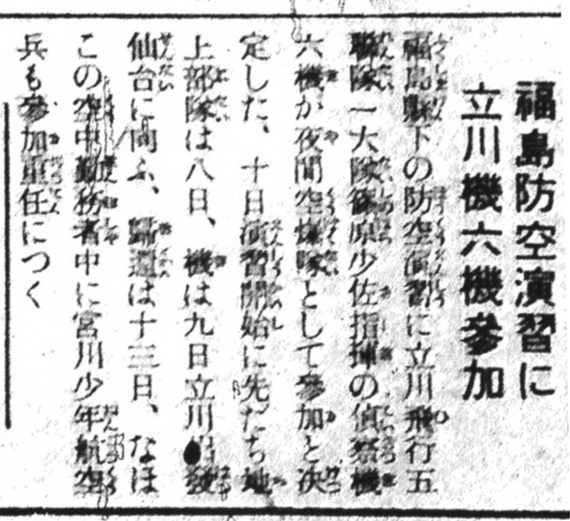 福島防空演習に
立川機六機參加
福島縣下の防空演習に立川飛行五
聯隊一大隊篠原少佐指揮の偵察機
六機が夜間空爆隊として參加と決
定した、十日演習開始に先だち地
上部隊は八日、機は九日立川發
仙台に向ふ、歸還は十三日、なほ
この空中勤務者中に宮川少年航空
兵も參加重任につく